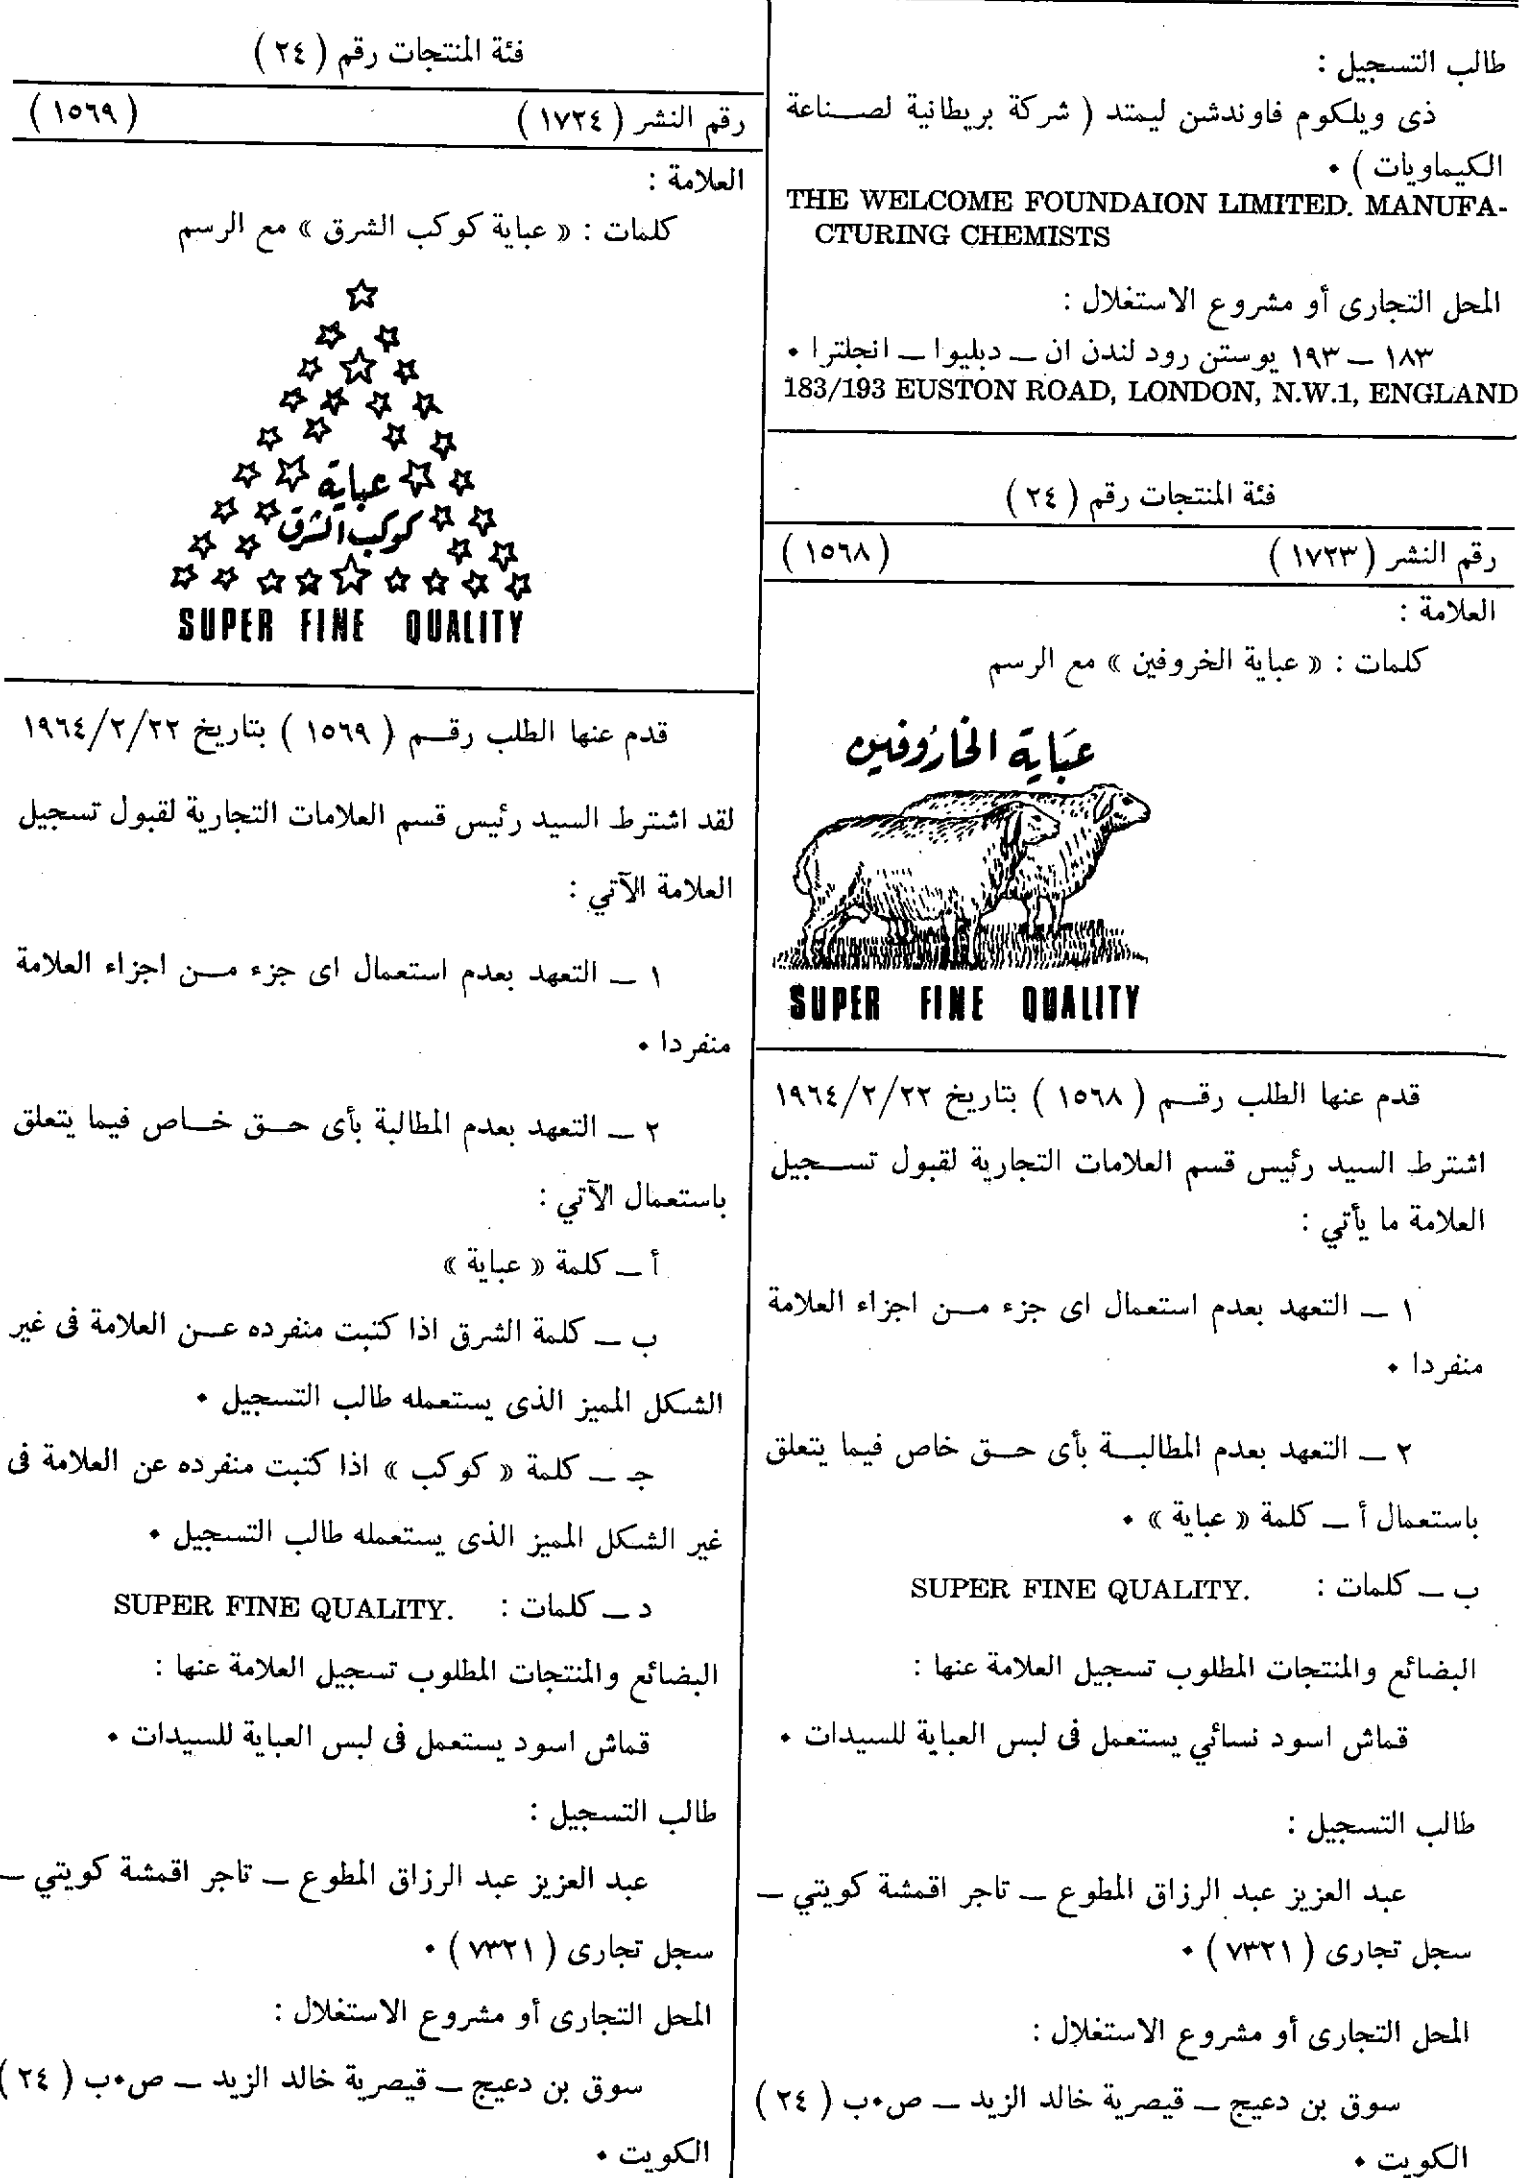 طالب التسجيل :
ذى ويلكوم فاوندشن ليمتد ( شركة بريطانية لصناعة
الكيماويات ) ٠
THE WELCOME FOUNDAION LIMITED. MANUFA-
CTURING CHEMISTS
المحل التجارى أو مشروع الاستغلال :
١٨٣ ــ ١٩٣ يوستن رود لندن ان ــ دبليوا ــ انجلترا ٠
183/193 EUSTON ROAD, LONDON, N.W.1, ENGLAND
فئة المنتجات رقم ( ٢٤ )
رقم النشر ( ١٧٢٣ ) ( ١٥٦٨ )
العلامة :
كلمات : « عباية الخروفين » مع الرسم
عباية الخاروفين
SUPER FINE QUALITY
قدم عنها الطلب رقم ( ١٥٦٨ ) بتاريخ ١٩٦٤/٢/٢٢
اشترط السيد رئيس قسم العلامات التجارية لقبول تسجيل
العلامة ما يأتي :
١ ــ التعهد بعدم استعمال اى جزء من اجزاء العلامة
منفردا ٠
٢ ــ التعهد بعدم المطالبة بأى حق خاص فيما يتعلق
باستعمال أ ــ كلمة « عباية » ٠
ب ــ كلمات : SUPER FINE QUALITY.
البضائع والمنتجات المطلوب تسجيل العلامة عنها :
قماش اسود نسائي يستعمل فى لبس العباية للسيدات ٠
طالب التسجيل :
عبد العزيز عبد الرزاق المطوع ــ تاجر اقمشة كويتي ــ
سجل تجارى ( ٧٣٢١ ) ٠
المحل التجارى أو مشروع الاستغلال :
سوق بن دعيج ــ قيصرية خالد الزيد ــ ص٠ب ( ٢٤ )
الكويت ٠
فئة المنتجات رقم ( ٢٤ )
رقم النشر ( ١٧٢٤ ) ( ١٥٦٩ )
العلامة :
كلمات : « عباية كوكب الشرق » مع الرسم
عباية
كوكب الشرق
SUPER FINE QUALITY
قدم عنها الطلب رقم ( ١٥٦٩ ) بتاريخ ١٩٦٤/٢/٢٢
لقد اشترط السيد رئيس قسم العلامات التجارية لقبول تسجيل
العلامة الآتي :
١ ــ التعهد بعدم استعمال اى جزء من اجزاء العلامة
منفردا ٠
٢ ــ التعهد بعدم المطالبة بأى حق خاص فيما يتعلق
باستعمال الآتي :
أ ــ كلمة « عباية »
ب ــ كلمة الشرق اذا كتبت منفرده عن العلامة فى غير
الشكل المميز الذى يستعمله طالب التسجيل ٠
جـ ــ كلمة « كوكب » اذا كتبت منفرده عن العلامة فى
غير الشكل المميز الذى يستعمله طالب التسجيل ٠
د ــ كلمات : SUPER FINE QUALITY.
البضائع والمنتجات المطلوب تسجيل العلامة عنها :
قماش اسود يستعمل فى لبس العباية للسيدات ٠
طالب التسجيل :
عبد العزيز عبد الرزاق المطوع ــ تاجر اقمشة كويتي ــ
سجل تجارى ( ٧٣٢١ ) ٠
المحل التجارى أو مشروع الاستغلال :
سوق بن دعيج ــ قيصرية خالد الزيد ــ ص٠ب ( ٢٤ )
الكويت ٠